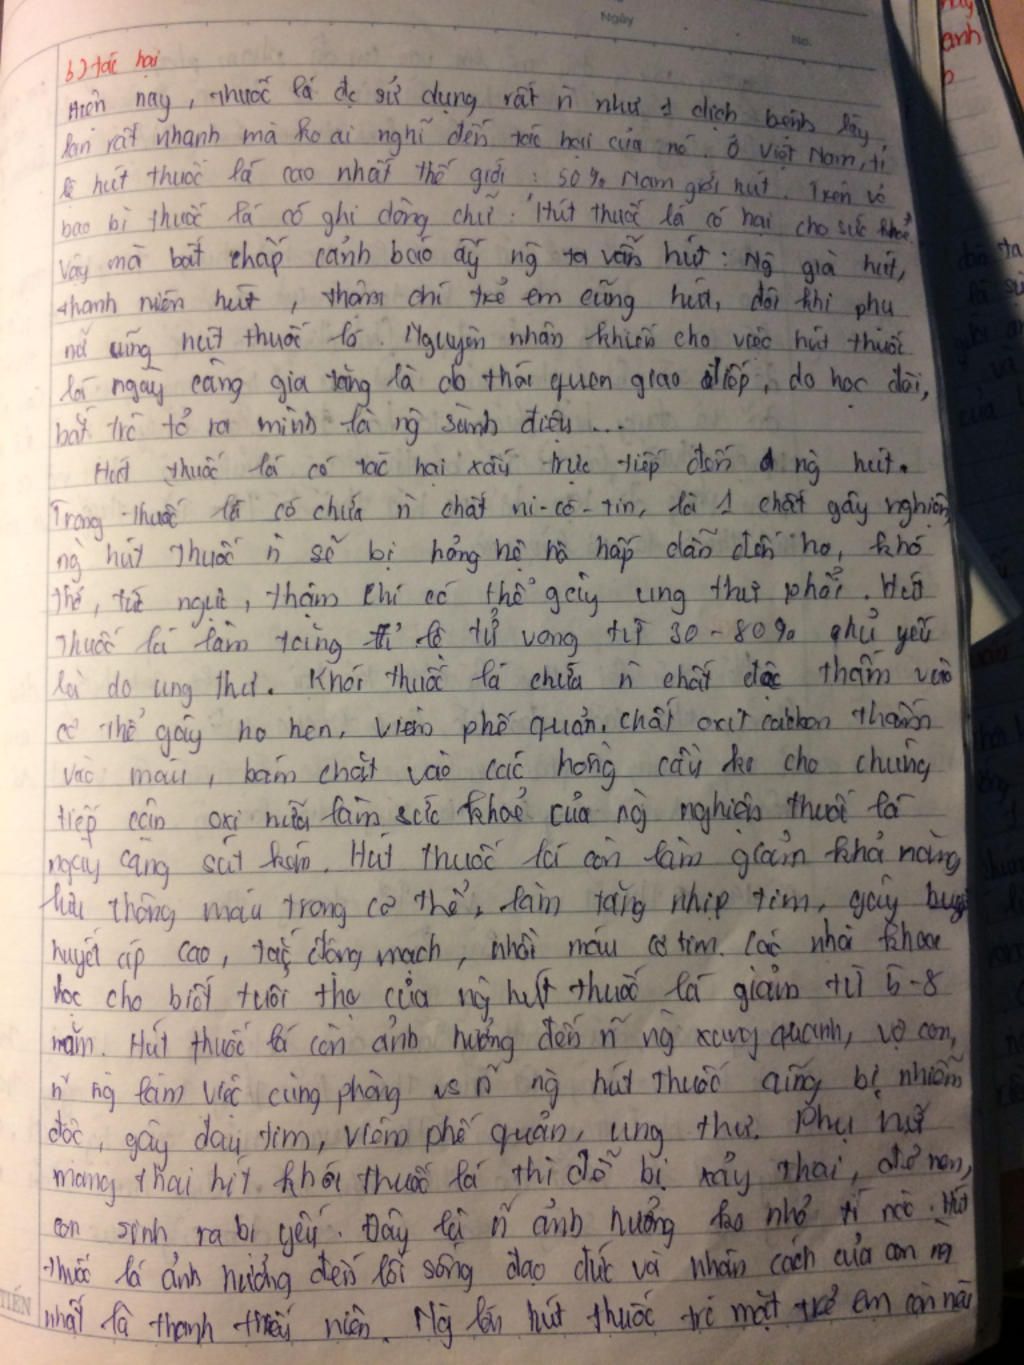 Ngày
No.
b) tác hại
Hiện nay, thuốc lá đc sử dụng rất ñ như 1 dịch bệnh lây
lan rất nhanh mà ko ai nghĩ đến tác hại của nó. Ở Việt Nam, tỉ
lệ hút thuốc lá cao nhất thế giới : 50% Nam giới hút. Trên vỏ
bao bì thuốc lá có ghi dòng chữ : "Hút thuốc lá có hại cho sức khoẻ
Vậy mà bất chấp cảnh báo ấy ng ta vẫn hút : Ng già hút,
thanh niên hút , thậm chí trẻ em cũng hút, đôi khi phụ
nữ cũng hút thuốc lá. Nguyên nhân khiến cho việc hút thuốc
lá ngày càng gia tăng là do thói quen giao tiếp, do học đòi,
bắt trc tỏ ra mình là ng sành điệu ...
Hút thuốc lá có tác hại xấu trực tiếp đến ng hút.
Trong thuốc lá có chứa ñ chất ni-cô-tin, là 1 chất gây nghiện
ng hút thuốc ñ sẽ bị hỏng hệ hô hấp dẫn đến ho, khó
thở, tức ngực, thậm chí có thể gây ung thư phổi. Hút
thuốc lá làm tăng tỉ lệ tử vong từ 30-80% chủ yếu
là do ung thư. Khói thuốc lá chứa ñ chất độc thấm vào
cơ thể gây ho hen, viêm phế quản, chất oxit cacbon thấm
vào máu, bám chặt vào các hồng cầu ko cho chúng
tiếp cận oxi nữa làm sức khoẻ của ng nghiện thuốc lá
ngày càng sút kém. Hút thuốc lá còn làm giảm khả năng
lưu thông máu trong cơ thể, làm tăng nhịp tim, gây
huyết áp cao, tắc động mạch, nhồi máu cơ tim. Các nhà khoa
học cho biết tuổi thọ của ng hút thuốc lá giảm từ 5-8
năm. Hút thuốc lá còn ảnh hưởng đến ñ ng xung quanh, vợ con,
ñ ng làm việc cùng phòng vs ñ ng hút thuốc cũng bị nhiễm
độc, gây đau tim, viêm phế quản, ung thư. Phụ nữ
mang thai hít khói thuốc lá thì dễ bị xảy thai, đẻ non,
con sinh ra bị yếu. Đây là ñ ảnh hưởng ko nhỏ tí nào. Hút
thuốc lá ảnh hưởng đến lối sống đạo đức và nhân cách của con ng
nhất là thanh thiếu niên. Ng lớn hút thuốc trc mặt trẻ em còn nêu
TIẾN